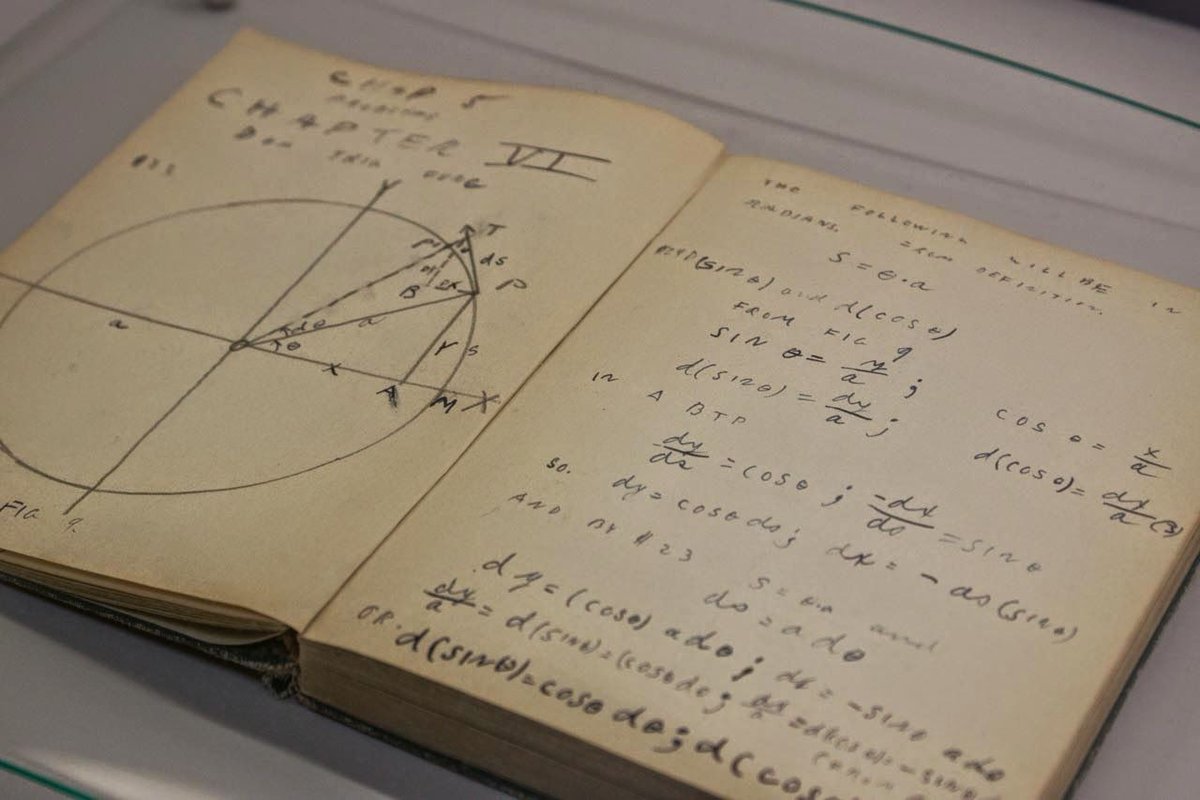 CHAP 5
CHAPTER VI
Y
T
P'
ds
P
B
dθ
a
a
θ
Y
S
X
A
M
X
FIG 9.
THE FOLLOWING WILL BE IN
RADIANS. FROM DEFINITION.
S = θ.a
d(SINθ) and d(COSθ)
FROM FIG 9
SIN θ = y/a ; COS θ = x/a
d(SINθ) = dy/a ; d(COSθ) = dx/a (3)
IN A BTP
dy/ds = COSθ ; -dx/ds = SINθ
SO. dy = COSθ ds ; dx = - ds (SINθ)
AND BY #23 S = θ.a and
ds = a dθ
dy = (COSθ) a dθ ; dx = - SINθ a dθ
dy/a = d(SINθ) = (COSθ dθ ; dx/a = d(COSθ) = - SINθ
OR. d(SINθ) = COSθ dθ ; d(COS